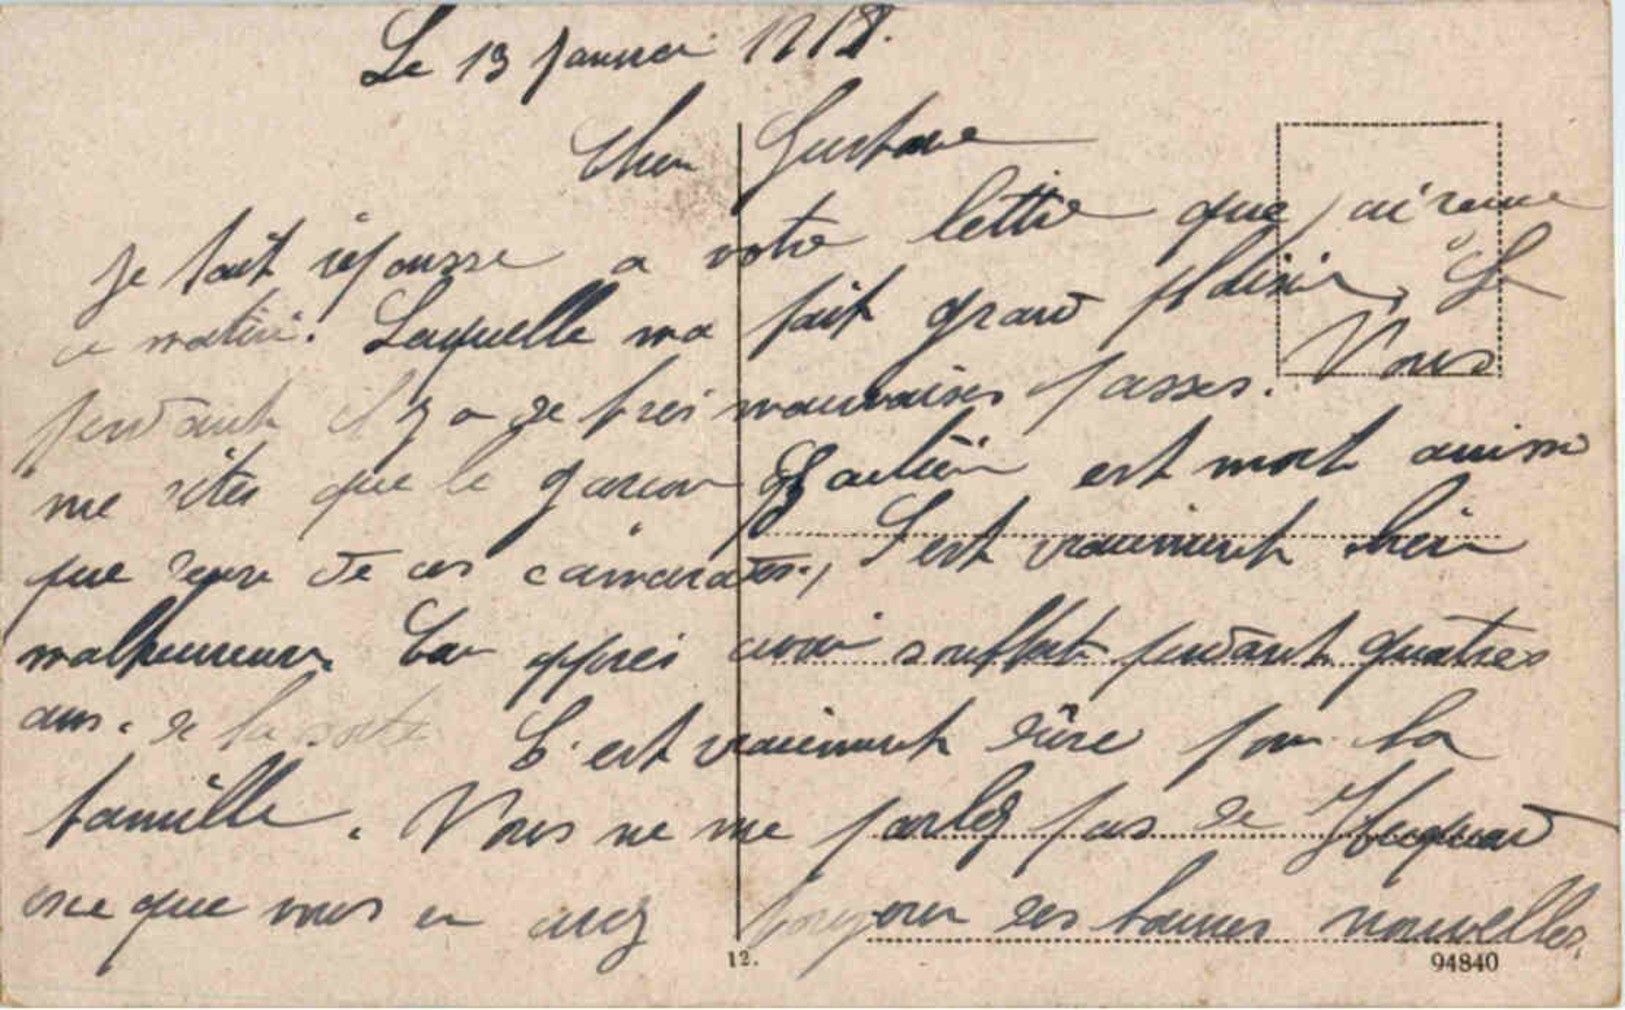 Le 13 Janvier 1918.
Cher Gustave
Je fait réponsse a votre lettre que j'ai reçue
ce matin. Laquelle ma fait grand plaisir. Ce
pendant il y a de tres mauvaises passes. Vous
me dites que le garcon est mort ainssi
que deux de ces camarades., S'est vraiement bien
malheureux. Car appres avoir souffert pendant quatres
ans. de la sorte C'est vraiement dûre pour la
famille. Vous ne me parlez pas de
esce que vous en avez toujours des bonnes nouvelles.
12.
94840